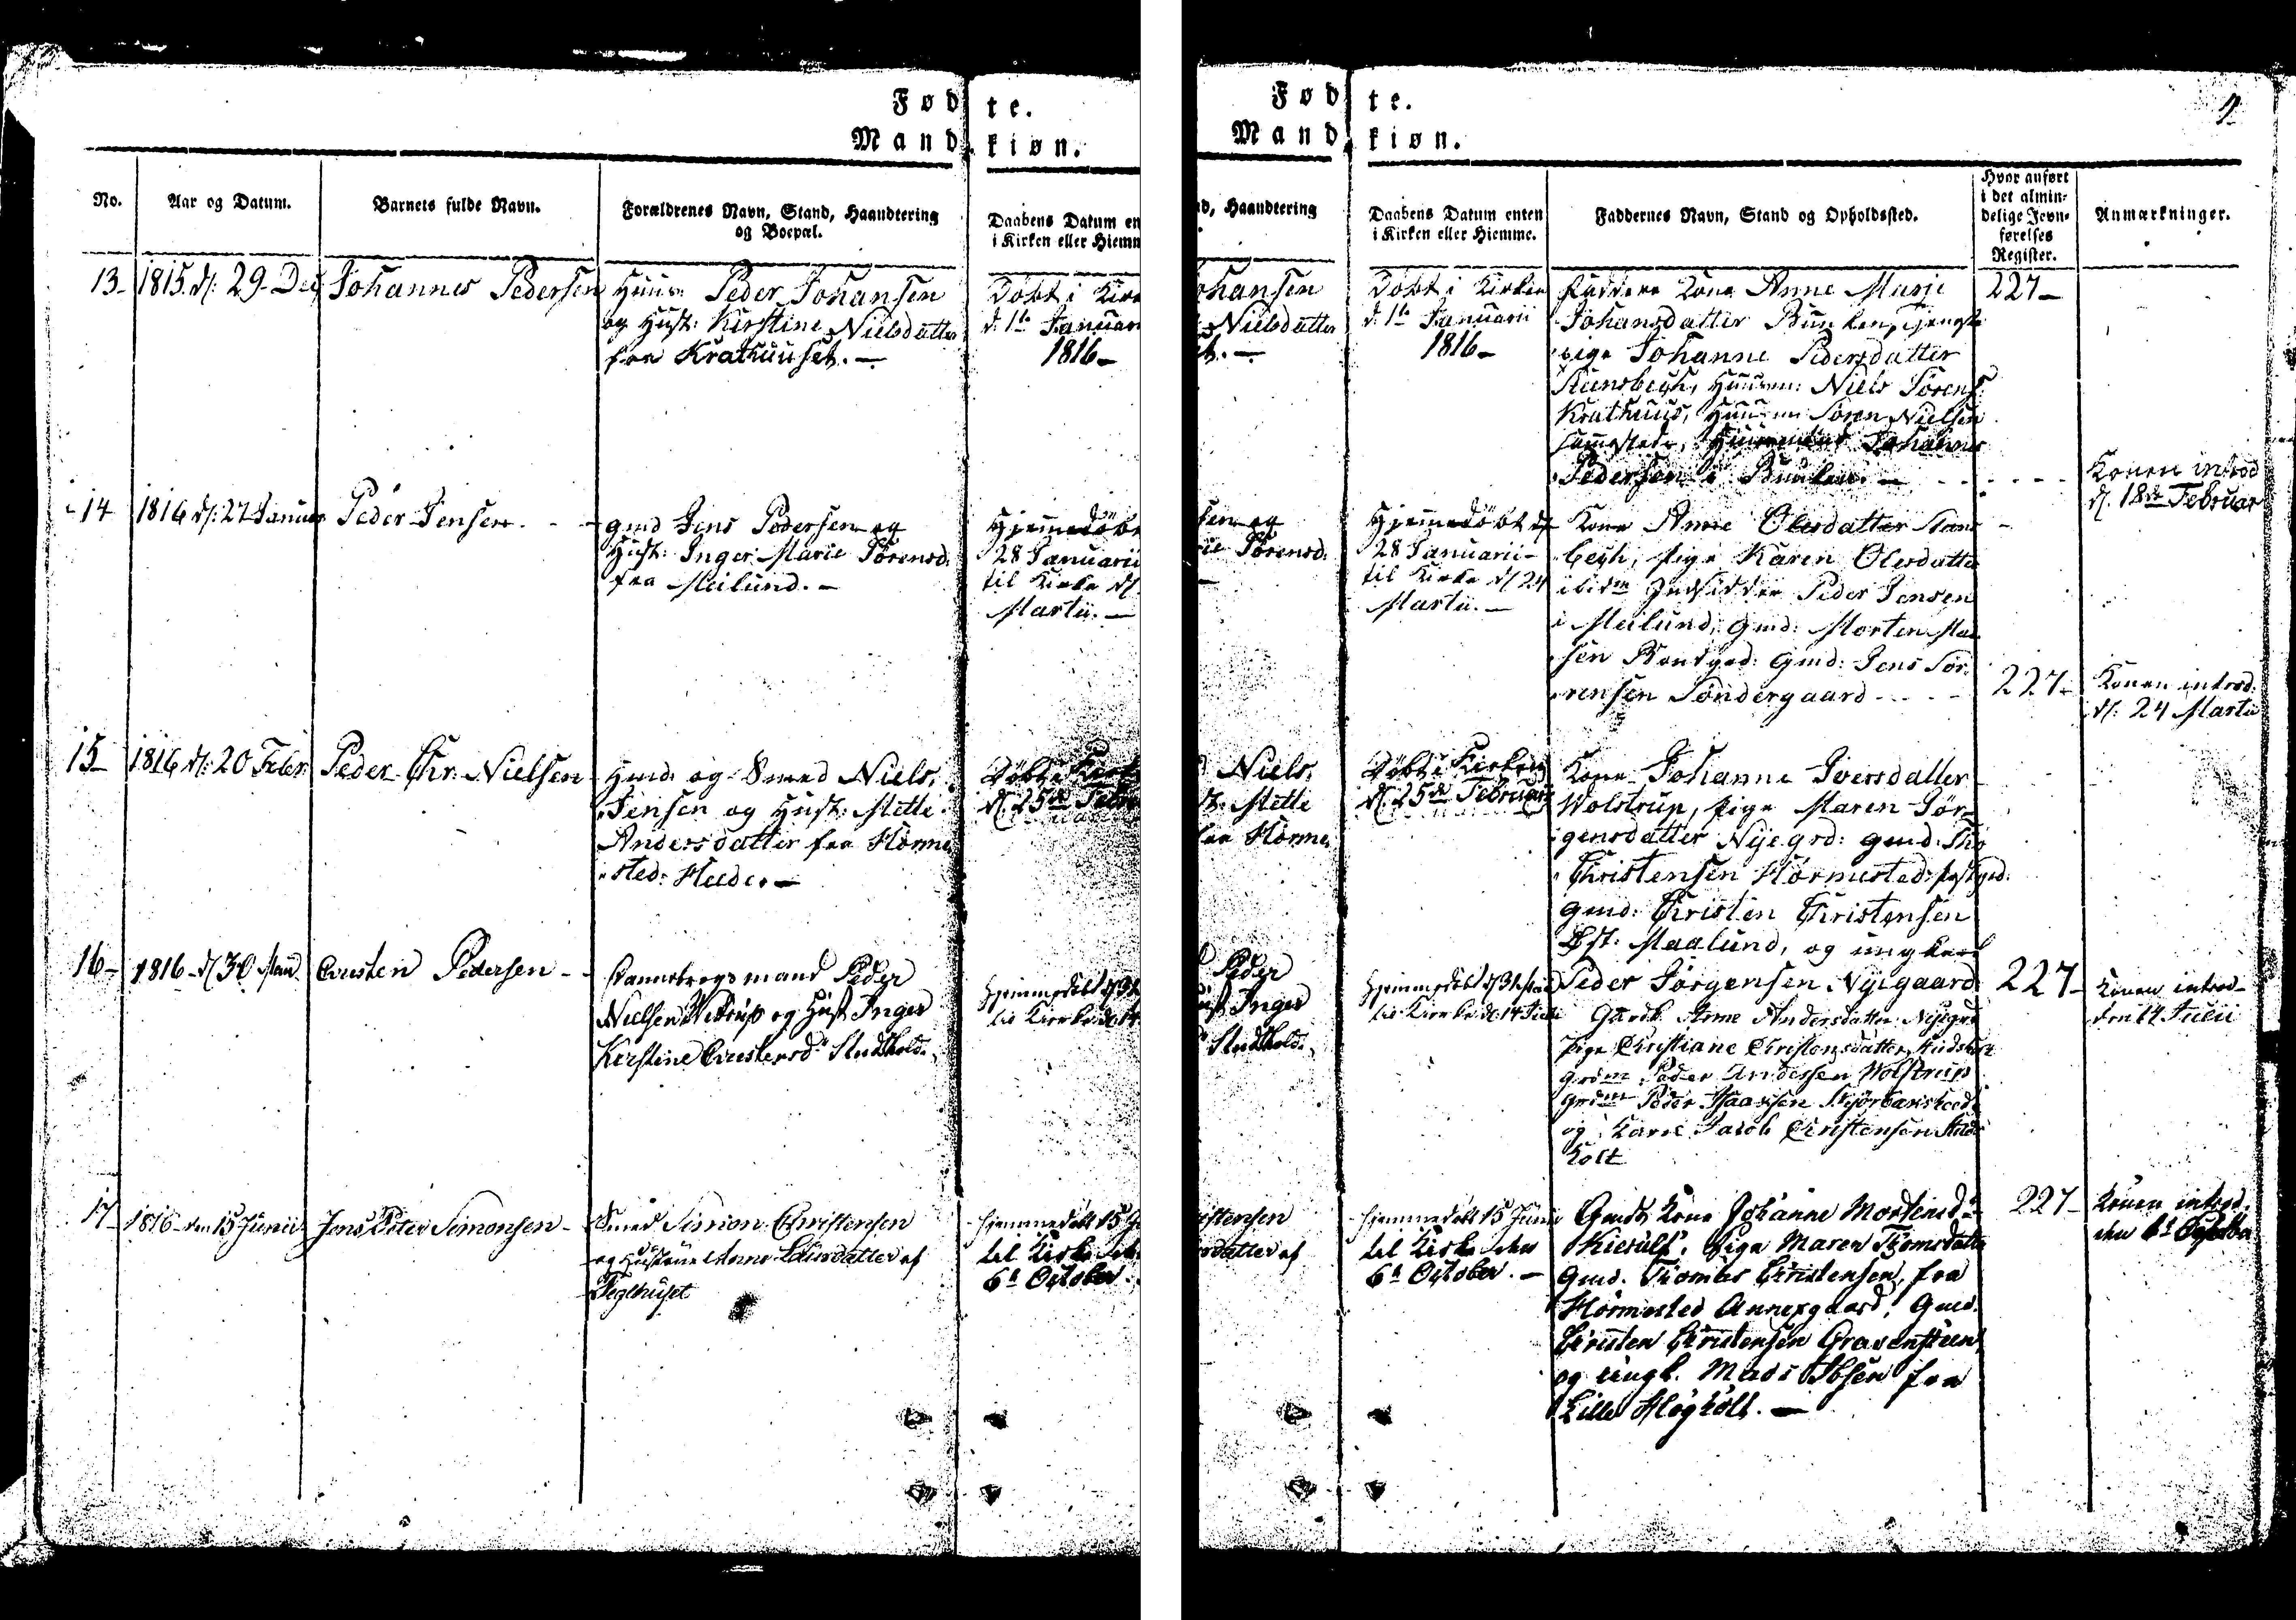 Fødte.
Mandkiøn.
No.
Aar og Datum.
Barnets fulde Navn.
Forældrenes Navn, Stand, Haandtering
og Boepæl.
Daabens Datum en
i Kirken eller Hiemm
13- 1815. d. 29. Dec Johannes Pedersen
Huusm Peder Johansen
og Hust: Kirstine Nielsdatter
fra Krathuuset. -
Döbt i Kirk
d: 1te Januari
1816-
14 1816 d: 27 Januar Peder Jensen
gmd Jens Pedersen og
Hust: Inger Marie Sörensd:
fra Meilund. -
Hjemmedöbt
28 Januarii
til Kirke d/
Martii. -
15- 1816 d: 20 Febr. Peder Chr: Nielsen
Hmd: og Smed Niels
Jensen og Hust: Mette
Andersdatter fra Hörme
sted: Heede. -
Döbt i Kirk
d. 25de Febru
16- 1816 d/ 30 Maii Christen Pedersen -
Dannebrogsmand Peder
Nielsen og Hust Inger
Kirstine Christensdr Studthold.
Hjemmedöbt d 31
til Kirke d: 14
17- 1816 - den 15 Junii Jens Peter Simonsen -
Smed Simon Christensen
og Hustrue Anne Lausdatter af
Teglhuset
hjemmedöbt 15 Ju
til Kirke den
6te October.
Fødte.
Mandkiøn.
d, Haandtering
Daabens Datum enten
i Kirken eller Hiemme.
Faddernes Navn, Stand og Opholdssted.
Hvor anført
i det almin-
delige Jevn-
førelses
Register.
Anmærkninger.
ohansen
Nielsdatter
t. -
Döbt i Kirken
d: 1te Januarii
1816-
Kone Anne Marie
Johansdatter Bunken, Tjeneste
pige Johanne Pedersdatter
Steensbegh, Huusm: Niels Sörens:
Krathuus, Huusm Sören Nielsen
sammestede, Johannes
Pedersen i Bunken. -
227-
Konen introd
d. 18de Februar
sen og
ie Sörensd:
Hjemmedöbt d/
28 Januarii -
til Kirke d/ 24
Martii. -
Kone Anne Olesdatter Steens
begh, pige Karen Olesdatter
ibidm Indsidder Peder Jensen
i Meilund, Gmd: Morten Mad
sen Gmd: Jens Sör:
rensen Söndergaard
227-
Konen introd:
d: 24 Martii
Niels
t: Mette
fra Hörme
Döbt i Kirken
d. 25de Februarii
Kone Johanne Iversdatter
Wolstrup, pige Maren Jör-
gensdatter Nyegrd: gmd: Tho
Christensen Hörmested:
Gmd: Christen Christensen
Öst: Maalund, og ungkarl
Peder Jörgensen Nyegaard
227-
Konen introd-
den 14 Julii
Peder
ust Inger
Studthold.
Hjemmedöbt d 31 Maii
til Kirke d: 14 Julii
Gaardk. Anne Andersdatter Nyegrd
Pige Christiane Christensdatter Studsholt
grdm Peder Anderssen Wolstrup
grdm Peder Isaachsen
og Karl Jacob Christensen Studs
holt
istensen
sdatter af
hjemmedöbt 15 Junii
til Kirke den
6te October. -
Gmds Kone Johanne Mortensdr
Kierulf. Pige Maren Thomsdatter
Gmd. Thomas Christensen, fra
Hörmested Annexgaard, Gmd.
Christen Christensen Gravensteen
og ungk. Mads Ibsen fra
Lille Höghölt. -
227-
Konen introd.
den 6te October